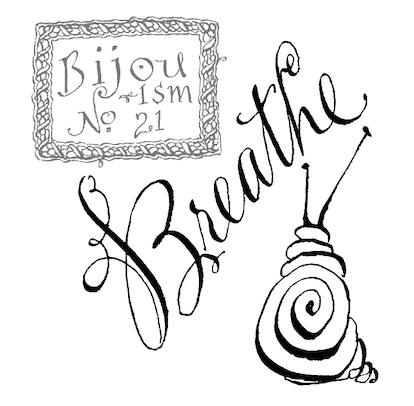 Bijou
-ism
No. 21
Breathe